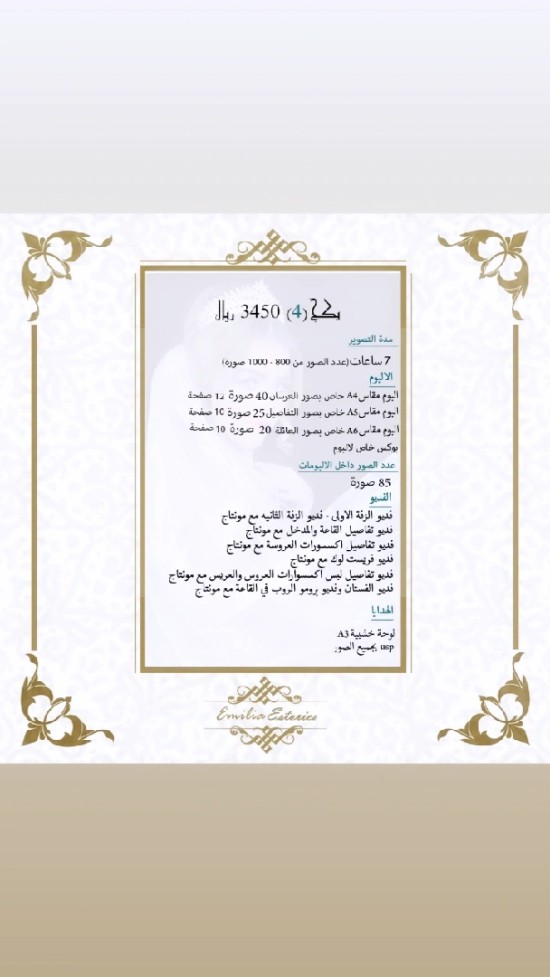 بكج (4) 3450 ريال
مدة التصوير
7 ساعات (عدد الصور من 800 - 1000 صورة)
الالبوم
البوم مقاس A4 خاص بصور العرسان 40 صورة 12 صفحة
البوم مقاس A5 خاص بصور التفاصيل 25 صورة 10 صفحة
البوم مقاس A6 خاص بصور العائلة 20 صورة 10 صفحة
بوكس خاص لالبوم
عدد الصور داخل الالبومات
85 صورة
الفديو
فديو الزفة الاولى - فديو الزفة الثانيه مع مونتاج
فديو تفاصيل القاعة والمدخل مع مونتاج
فديو تفاصيل اكسسورات العروسة مع مونتاج
فديو فريست لوك مع مونتاج
فديو تفاصيل لبس اكسسوارات العروس والعريس مع مونتاج
فديو الفستان وفديو برومو الروب في القاعة مع مونتاج
الهدايا
لوحة خشبية A3
usp بجميع الصور
Emilia Esterice